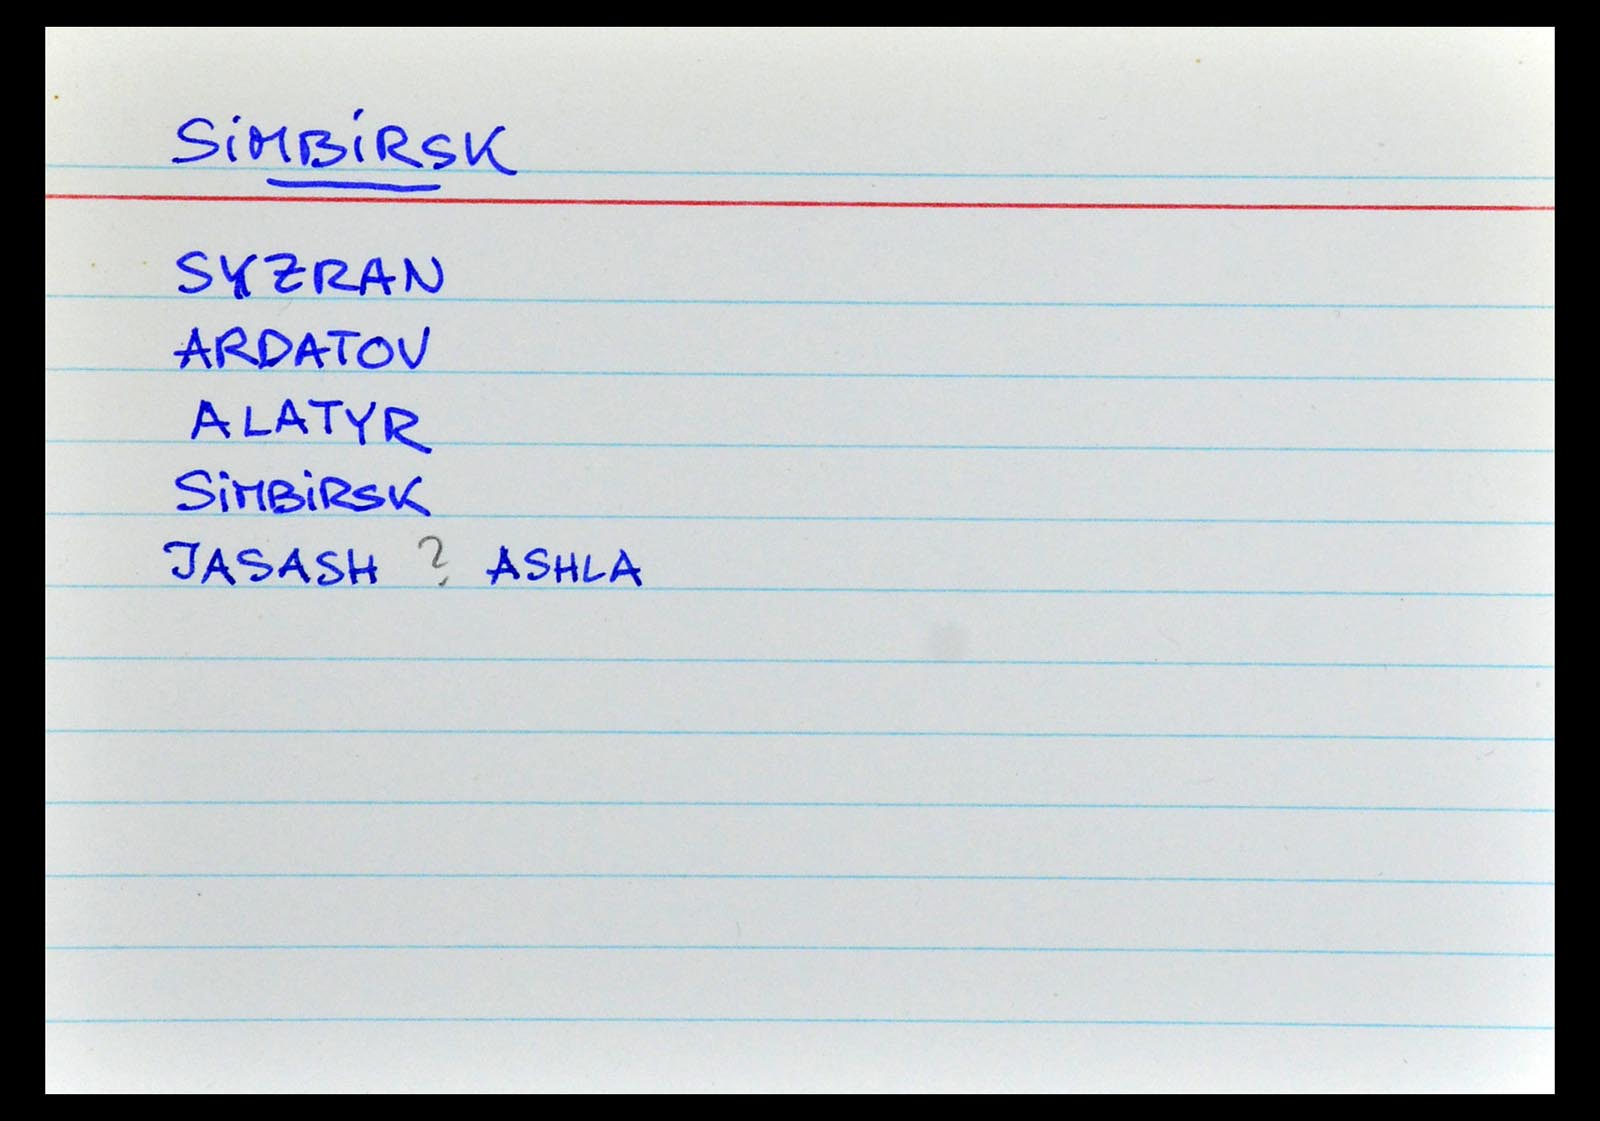 SiMBiRSK
SYZRAN
ARDATOV
ALATYR
SiMBiRSK
JASASH ? ASHLA